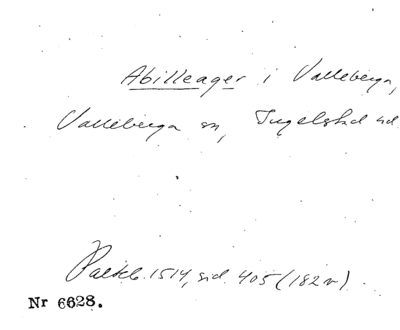 Abilleager i Valleberga,
Valleberga sn, Ingelstad hd.
Palteb. 1514, sid. 405 (182 v)
Nr 6628.